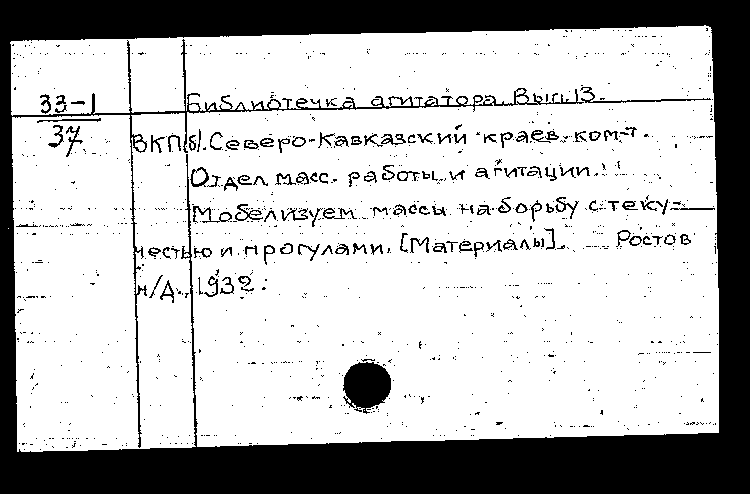 33-1
37
Библиотечка агитатора. Вып. 13.
ВКП(б). Северо-Кавказский краев. ком-т.
Отдел масс. работы и агитации.
Мобелизуем массы на борьбу с теку-
честью и прогулами. [Материалы]. Ростов
н/Д., 1932.